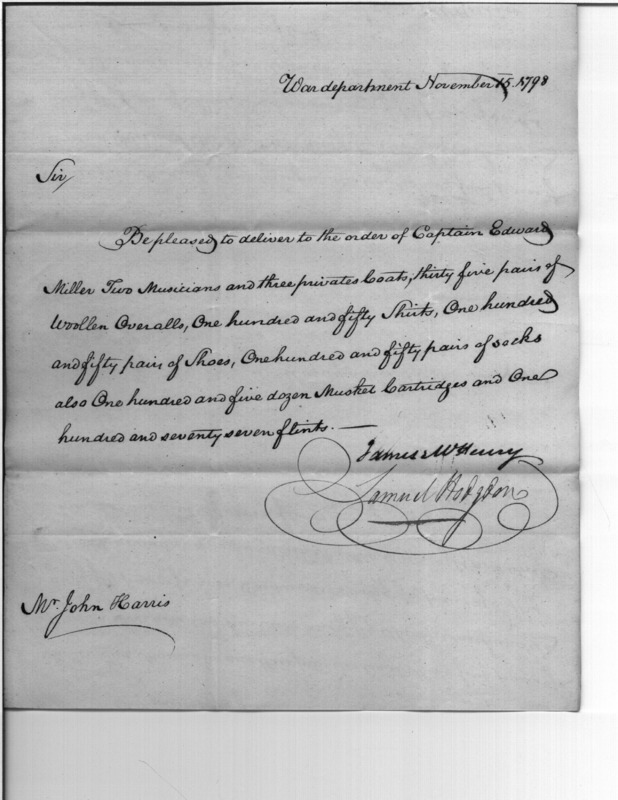 War department November 15. 1798
Sir/
Be pleased to deliver to the order of Captain Edward
Miller Two Musicians and three privates Coats, thirty five pairs of
Woollen Overalls, One hundred and fifty Shirts, One hundred
and fifty pairs of Shoes, One hundred and fifty pairs of socks
also One hundred and five dozen Musket Cartridges and One
hundred and seventy seven flints. —
James McHenry
Samuel Hodgdon
Mr. John Harris